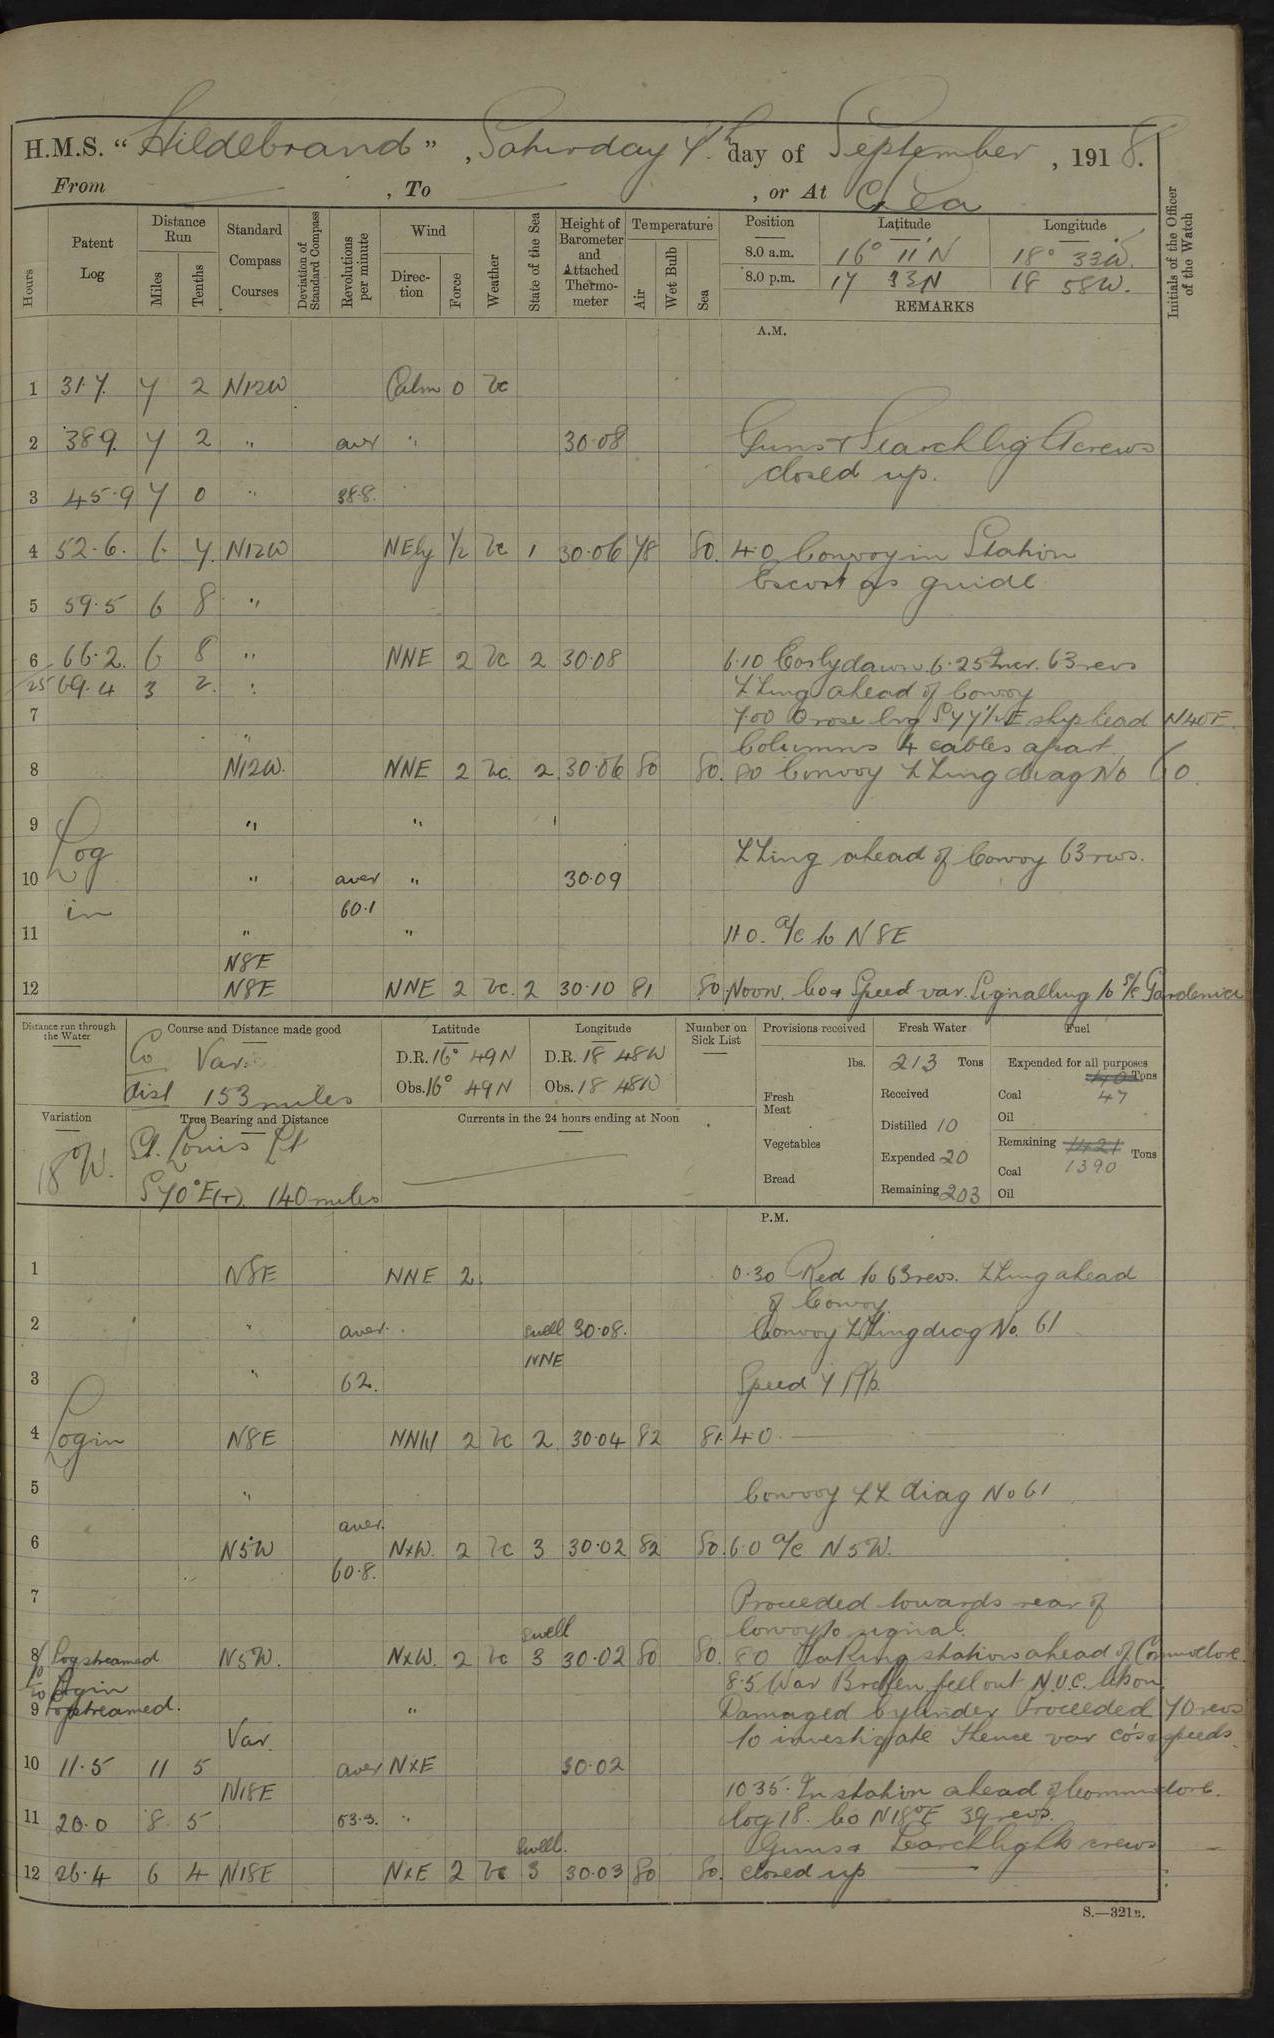 H.M.S. "Hildebrand", Saturday 7th day of September, 1918.
From — , To — , or At Sea
Hours
Patent Log
Distance Run
Miles
Tenths
Standard Compass Courses
Deviation of Standard Compass
Revolutions per minute
Wind
Direction
Force
Weather
State of the Sea
Height of Barometer and Attached Thermometer
Temperature
Air
Wet Bulb
Sea
Position Latitude Longitude
8.0 a.m. 16° 11'N 18° 33'W.
8.0 p.m. 17 33N 18 58W.
REMARKS
Initials of the Officer of the Watch
A.M.
1 31.7. 7 2 N12W Calm 0 bc
2 38.9. 7 2 " aver " 30.08 Guns & Searchlight crews
closed up.
3 45.9 7 0 " 38.8.
4 52.6. 6. 7. N12W NEly 1/2 bc 1 30.06 78 80. 4.0 Convoy in Station
Escort as guide
5 59.5 6 8 "
6 66.2. 6 8 " NNE 2 bc 2 30.08 6.10 Early dawn. 6.25 Incr. 63 revs
25 69.4 3 2. " ZZing ahead of Convoy
7 7.00 rose brg S77½E ship head N40E.
" Columns 4 cables apart
8 N12W. NNE 2 bc. 2 30.06 80 80. 8.0 Convoy ZZing diag No 60.
9 " "
Log ZZing ahead of Convoy 63 revs.
10 " aver " 30.09
in 60.1
11 " " 11.0. a/c to N8E
N8E
12 N8E NNE 2 bc. 2 30.10 81 80 Noon. Co & Speed var. Signalling to S/S Gardenia
Distance run through the Water
Course and Distance made good
Co Var.
dist 153 miles
Latitude
D.R. 16° 49N
Obs. 16° 49N
Longitude
D.R. 18 48W
Obs. 18 48W
Number on Sick List
Provisions received
lbs.
Fresh Meat
Vegetables
Bread
Fresh Water
213 Tons
Received
Distilled 10
Expended 20
Remaining 203
Fuel
Expended for all purposes
40 Tons
Coal 47
Oil
Remaining 1421 Tons
Coal 1390
Oil
Variation
18°W.
True Bearing and Distance
St. Louis Lt
S70°E(T). 140 miles
Currents in the 24 hours ending at Noon
P.M.
1 N8E NNE 2. 0.30 Red to 63 revs. ZZing ahead
of Convoy.
2 " aver. swell 30.08. Convoy ZZing diag No. 61
NNE
3 " 62. Speed 7
4 Log in N8E NNW 2 bc 2 30.04 82 81. 4.0 —
5 " Convoy ZZ diag No 61
aver.
6 N5W NxW. 2 bc 3 30.02 82 80. 6.0 a/c N5W.
60.8.
7 Proceeded towards rear of
Convoy to signal.
swell
8 Log streamed N5W. NxW. 2 bc 3 30.02 80 80. 8.0 Taking station ahead of Commodore.
Log in 8.5 War fell out N.U.C.
9 Log streamed. " Damaged Cylinder Proceeded 70 revs
Var. to investigate thence var co's & speeds.
10 11.5 11 5 aver NxE 30.02
N18E 10.35. In station ahead of Commodore.
11 20.0 8 5 53.3. " log 18. Co N18°E 39 revs.
swell. Guns & Searchlight crews
12 26.4 6 4 N18E NxE 2 bc 3 30.03 80 80. closed up
S.—321B.